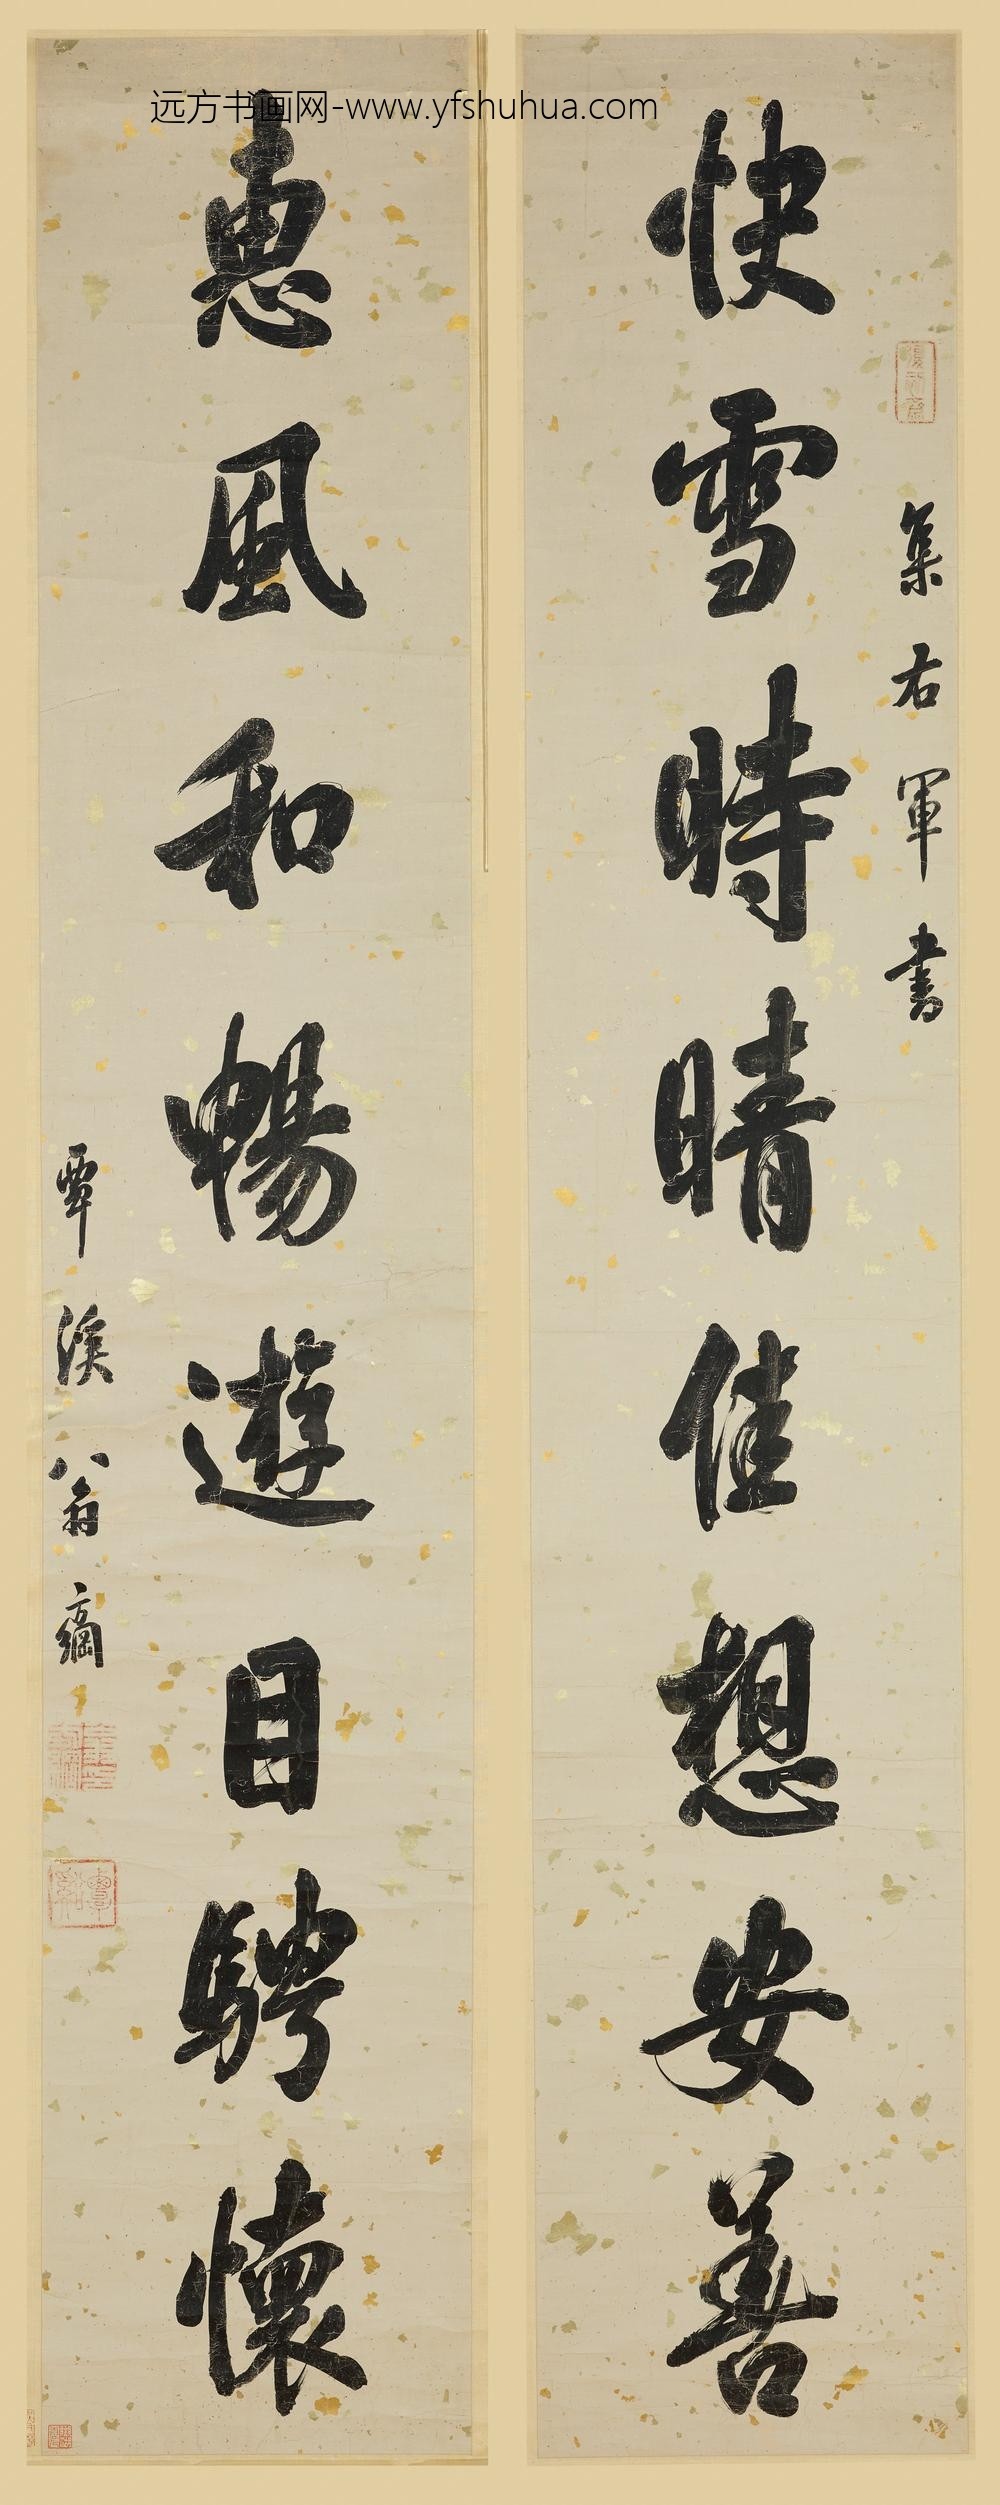 远方书画网-www.yfshuhua.com
集右軍書
快雪時晴佳想安善
惠風和暢遊目騁懷
覃溪翁方綱